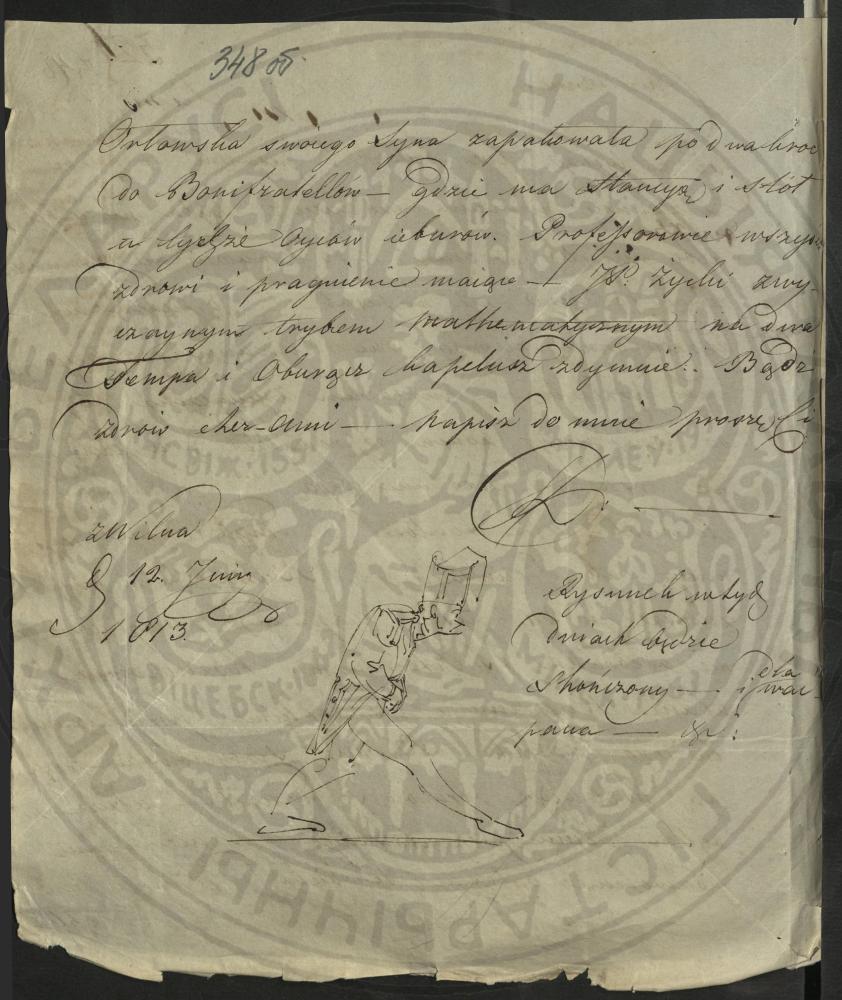 348 об.
Orłowska swoiego Syna zapakowała po dwakroć
do Bonifratellów — gdzie ma Stancyą i stół
a łyżże Oyców . Professorowie wszyscy
zdrowi i pragnienie maiące — JP. Życki zwy-
czaynym trybem mathematycznym na dwa
Tempa i Oburącz kapelusz zdymuie. Bądź
zdrów cher-Ami — napisz do mnie proszę Ci
z Wilna
D 12. Juny
1813.
Rysunek w tych
dniach będzie
skończony — i dla wać-
pana — &: